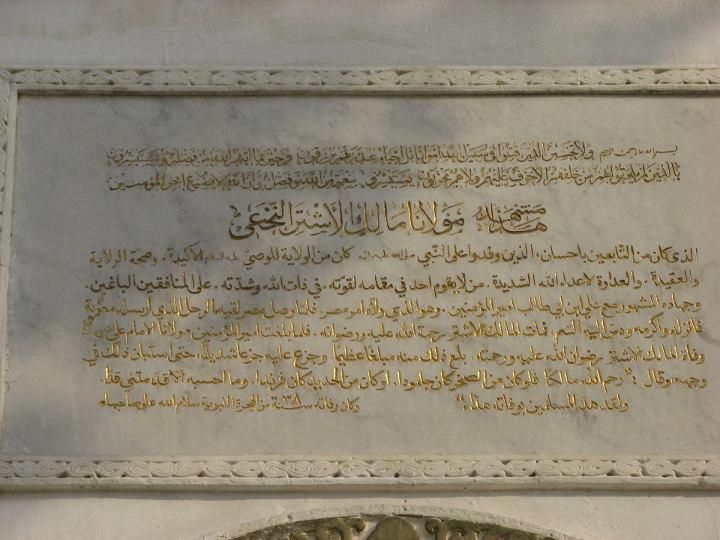 بسم الله الرحمن الرحيم ولا تحسبن الذين قتلوا في سبيل الله امواتا بل احياء عند ربهم يرزقون فرحين بما آتاهم الله من فضله ويستبشرون
بالذين لم يلحقوا بهم من خلفهم الا خوف عليهم ولا هم يحزنون يستبشرون بنعمة من الله وفضل وان الله لا يضيع اجر المؤمنين
هذا مشهد مولانا مالك الأشتر النخعي
الذي كان من التابعين باحسان، الذين وفدوا على النبي صلى الله عليه وآله كان من الولاية للوصي عليه السلام الاكيدة. وصحة الولاية
والعقيدة. والعداوة لاعداء الله الشديدة. من لا يقوم احد في مقامه لقوته. في ذات الله وشدته. على المنافقين الباغين.
وجهاده المشهور مع علي بن ابي طالب امير المؤمنين. وهو الذي ولاه امر مصر. فلما وصل مصر لقيه الرجل الذي ارسله معوية
فانزله واكرمه ودس اليه السم. فمات المالك الاشتر رحمة الله عليه ورضوانه. فلما بلغت امير المؤمنين مولانا الامام علي
وفاة المالك الاشتر رضوان الله عليه ورحمته. بلغ ذلك منه مبلغا عظيما وجزع عليه جزعا شديدا، حتى استبان ذلك في
وجهه وقال: "رحم الله مالكا فلو كان من الصخر كان جلمودا. او كان من الحديد كان فرندا. وما احسبه الا قد متنى قدا.
ولقد هد المسلمين بوفاته هذا:" وكان وفاته سنة ٣٨ من الهجرة النبوية سلام الله على صاحبها